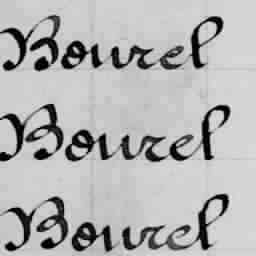 Bourel
Bourel
Bourel